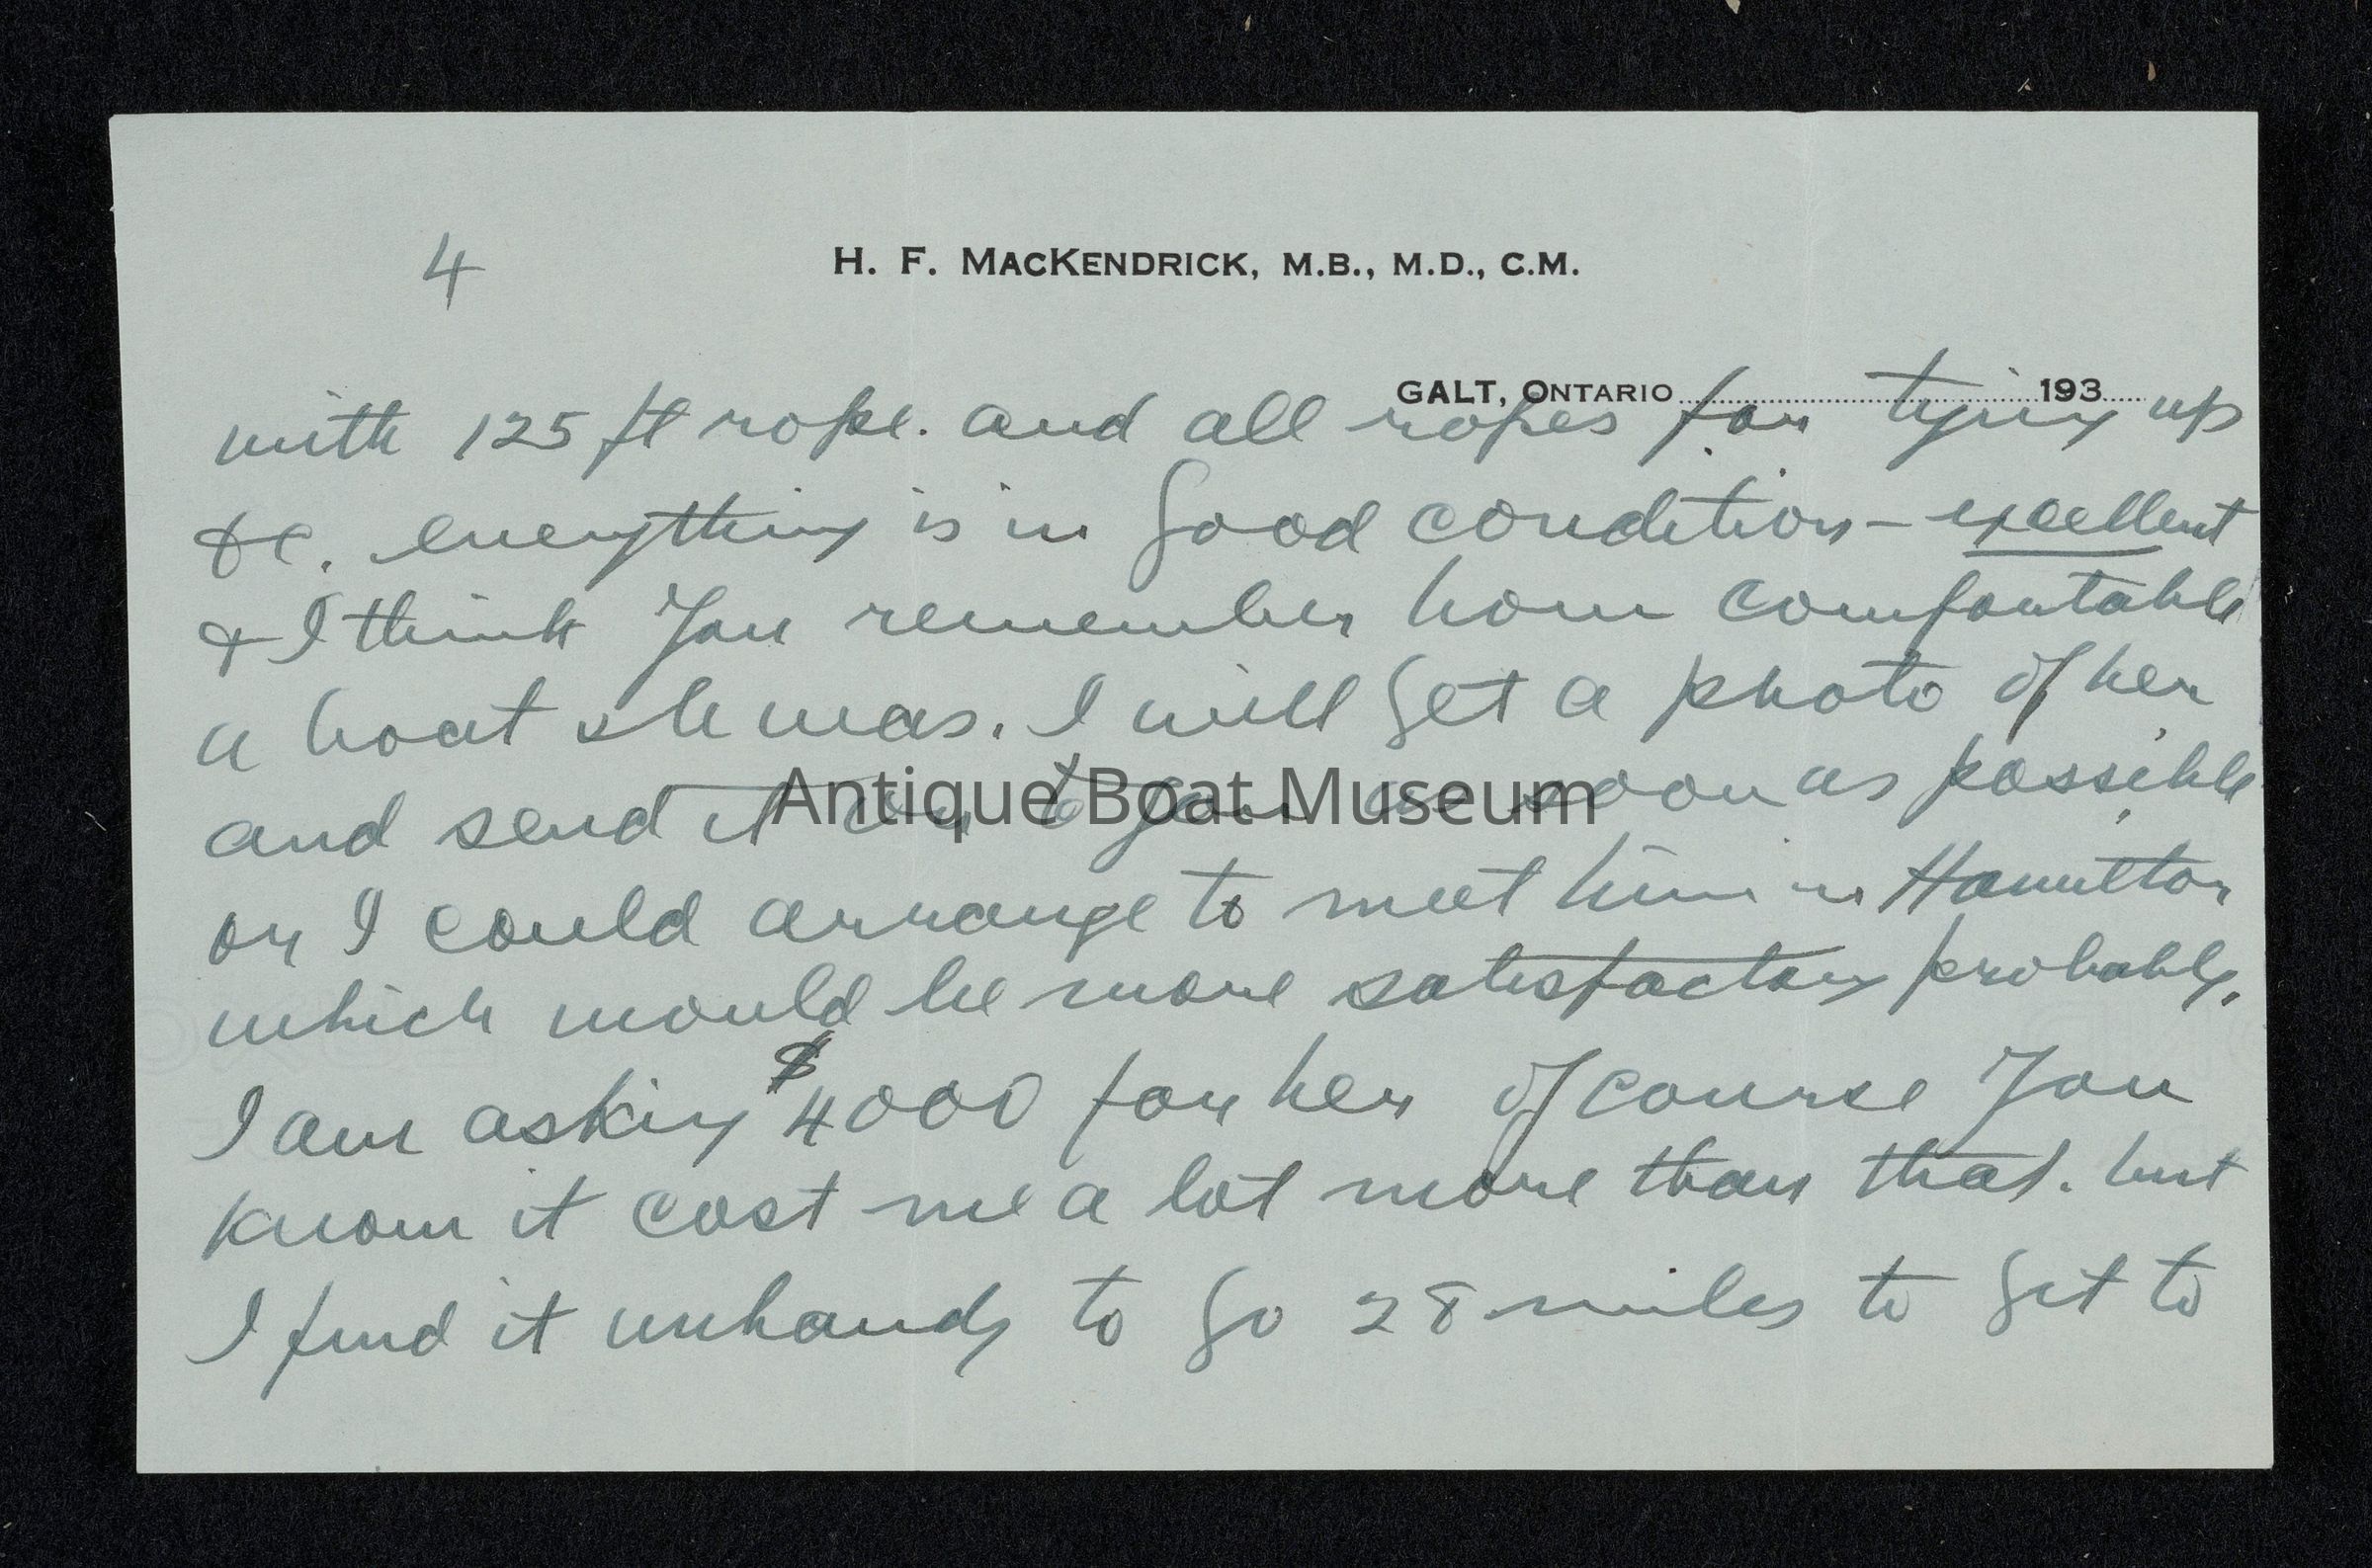 4
H. F. MacKendrick, M.B., M.D., C.M.
Galt, Ontario 193
with 125 ft rope. and all ropes for tying up
&c. everything is in good condition - excellent
& I think you remember how comfortable
a boat she was. I will get a photo of her
and send it on to you as soon as possible
Antique Boat Museum
or I could arrange to meet him in Hamilton
which would be more satisfactory probably.
I am asking $4000 for her of course you
know it cost me a lot more than that. but
I find it unhandy to go 28 miles to get to